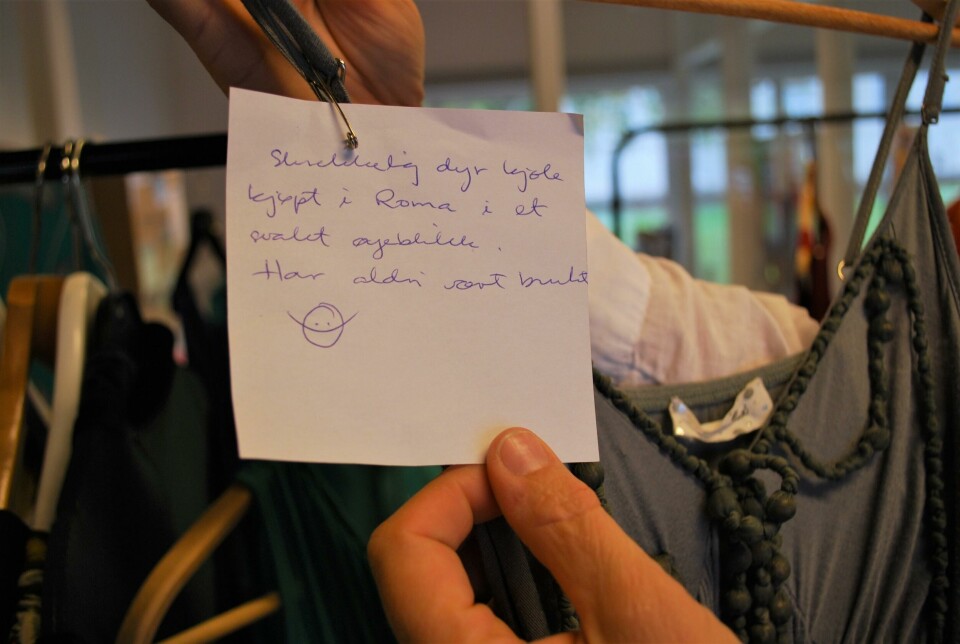 Skrekkelig dyr kjole
kjøpt i Roma i et
svakt øyeblikk.
Har aldri vært brukt